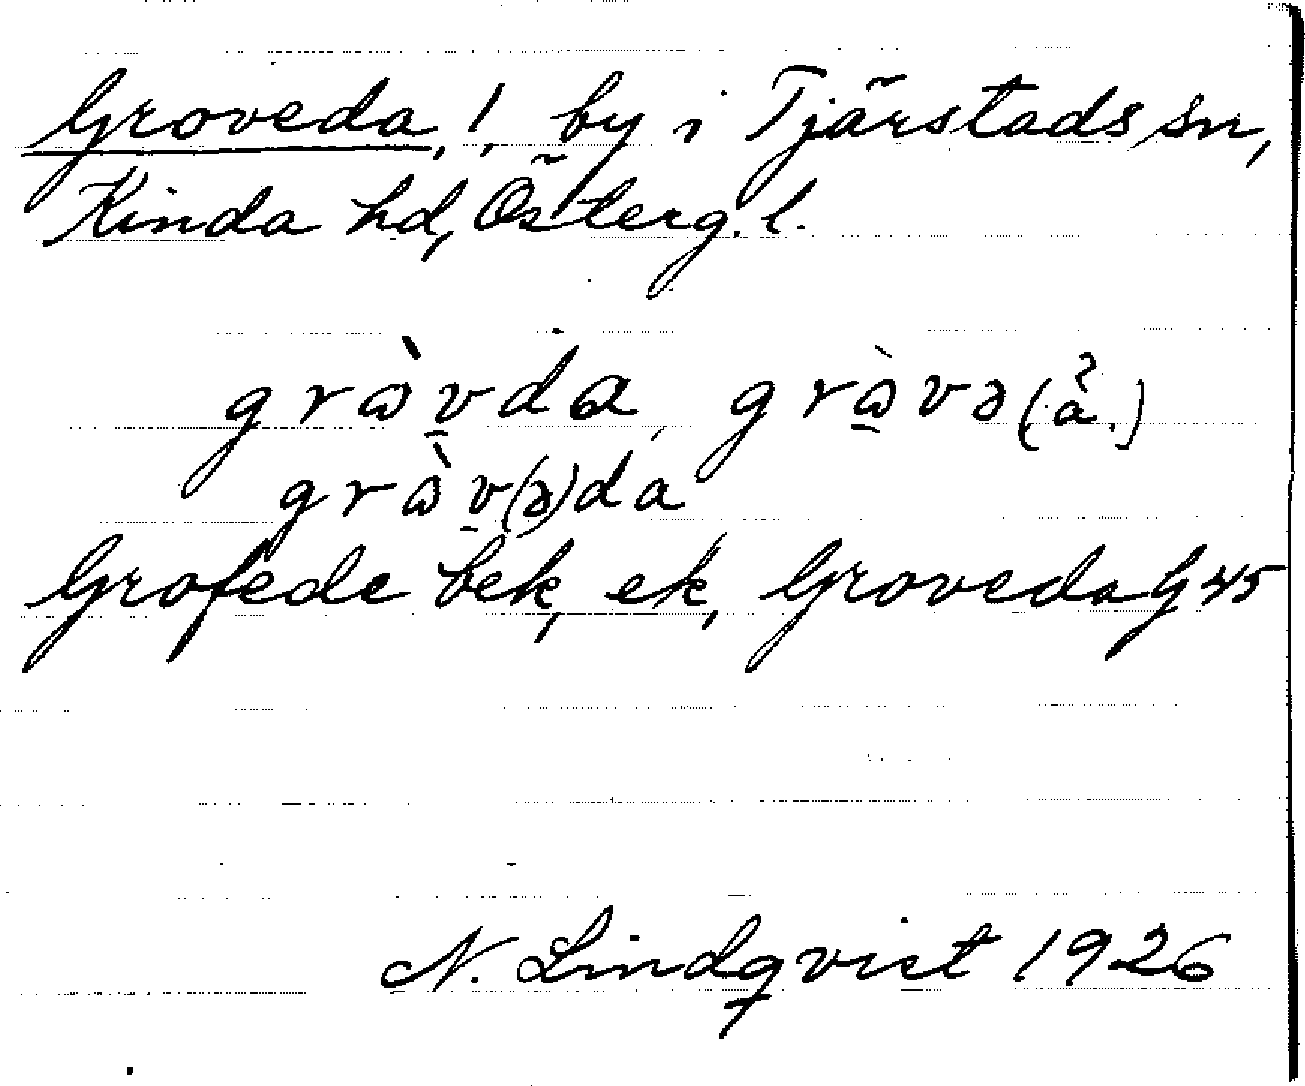 Groveda, !, by i Tjärstads sn,
Kinda hd, Österg. l.
grɷ̀v̠da, grɷ̠̀və (ả.)
grɷ̀v̠(ə)da
Grofede bek, ek, Groveda G45
N. Lindqvist 1926